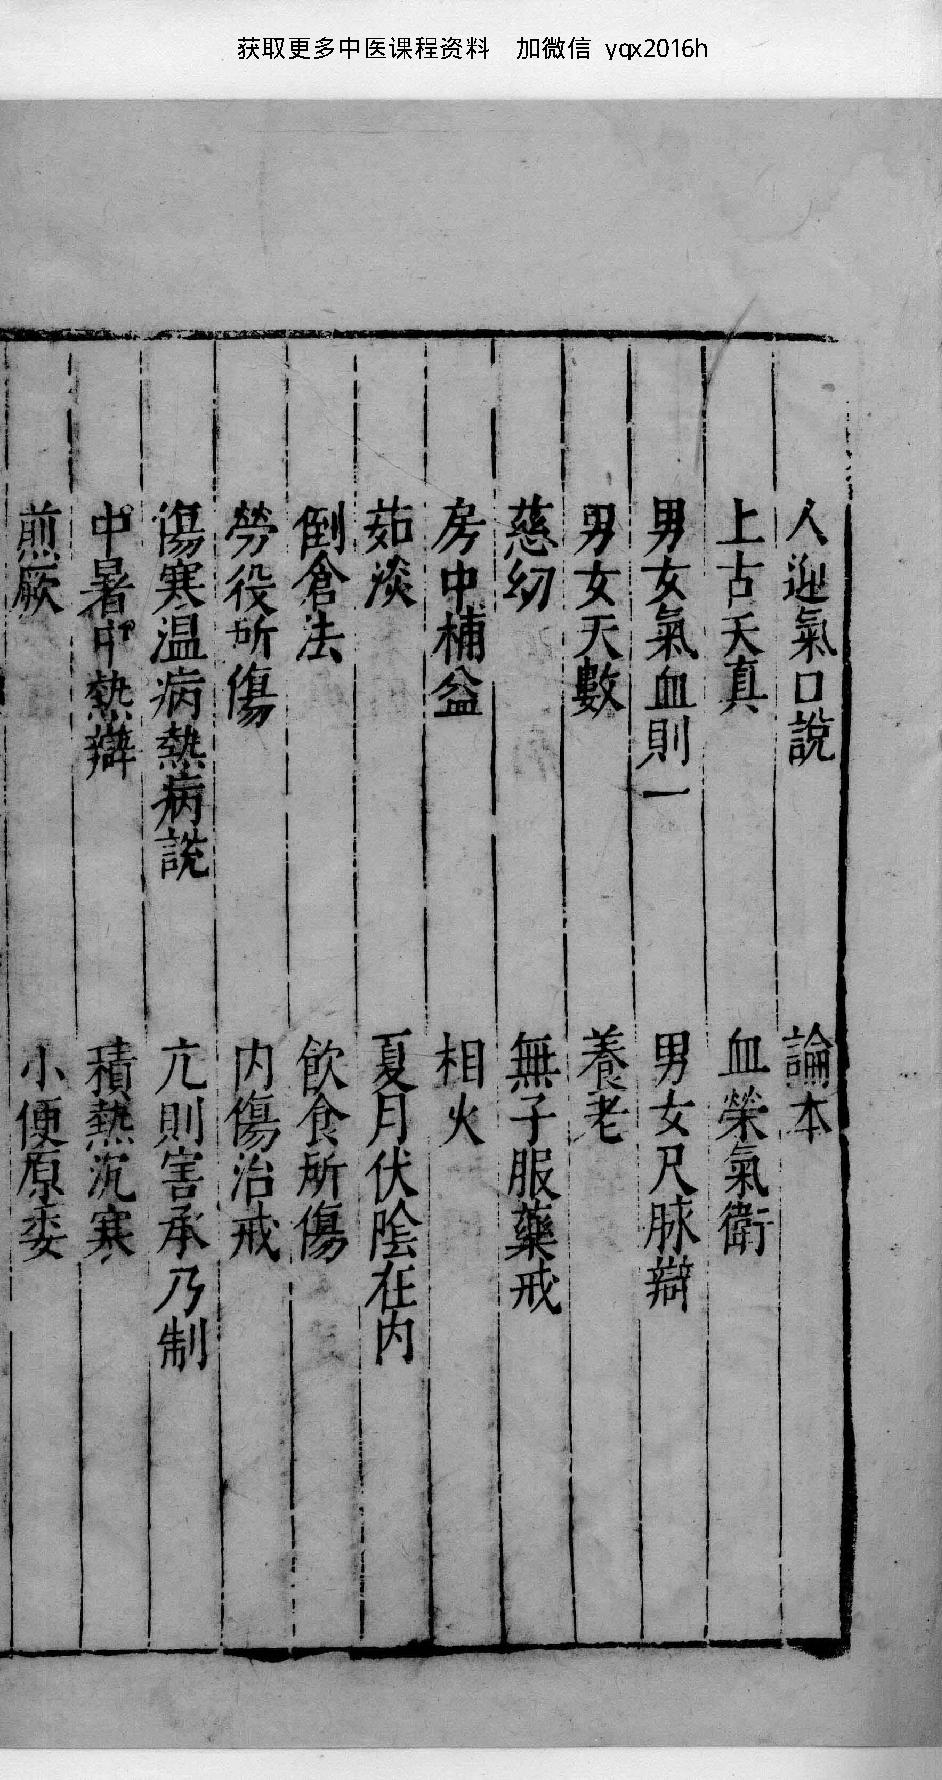 获取更多中医课程资料　加微信 yqx2016h
人迎氣口說　論本
上古天真　血榮氣衛
男女氣血則一　男女尺脉辯
男女天數　養老
慈幼　無子服藥戒
房中補益　相火
茹淡　夏月伏陰在内
倒倉法　飲食所傷
勞役所傷　内傷治戒
傷寒温病熱病說　亢則害承乃制
中暑中熱辯　積熱沉寒
煎厥　小便原委